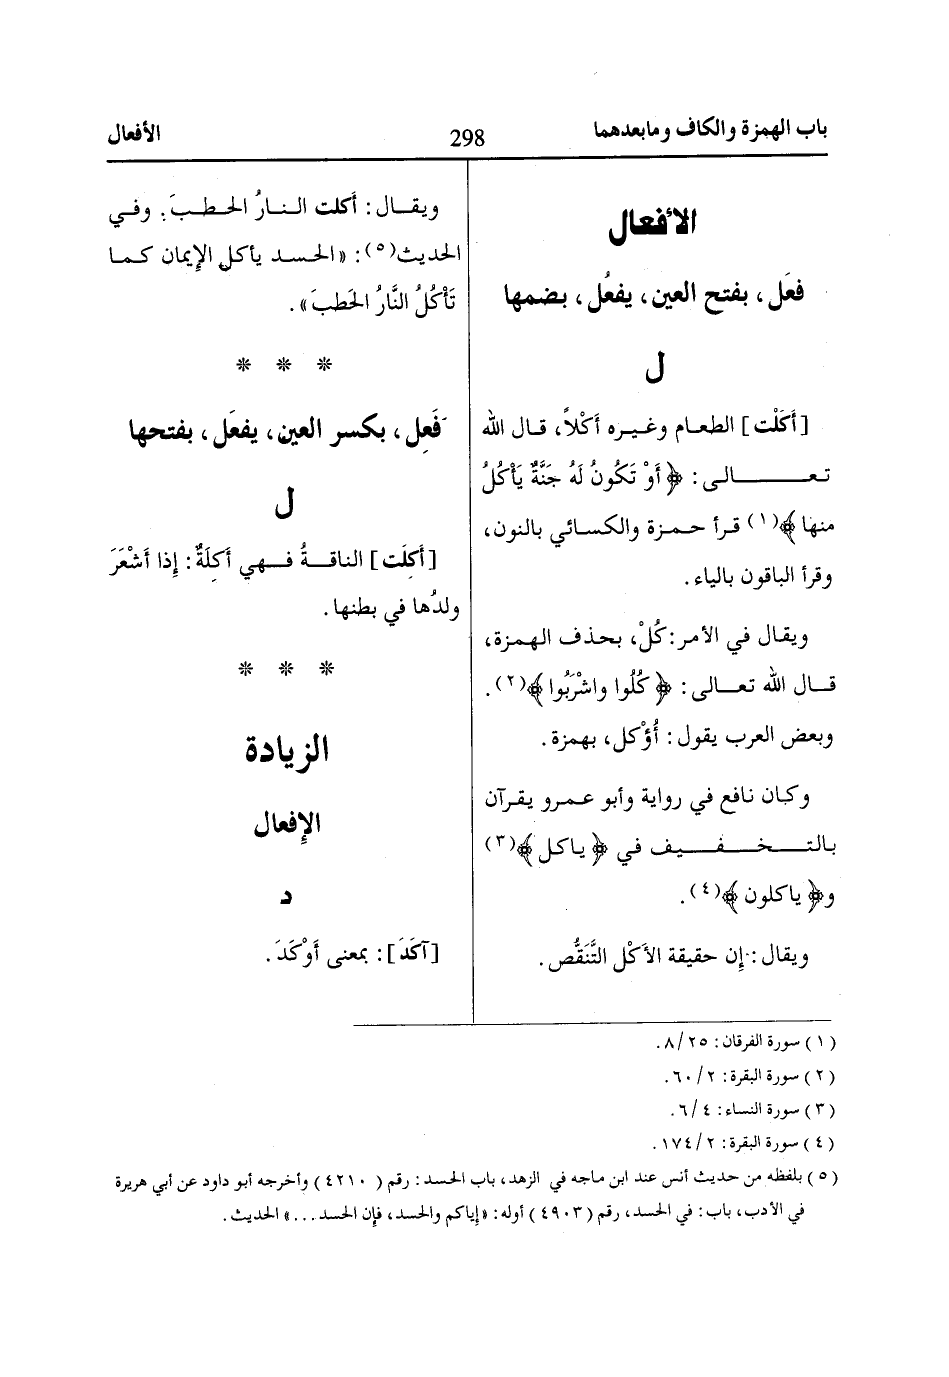 باب الهمزة والكاف ومابعدهما
298
الأفعال
الأفعال
فعَل، بفتح العين، يفعُل، بضمها
ل
[أَكَلْت] الطعام وغيره أكْلاً، قال الله
تعالى: ﴿أَوْ تَكُونُ لَهُ جَنَّةٌ يَأْكُلُ
منها﴾(١) قرأ حمزة والكسائي بالنون،
وقرأ الباقون بالياء.
ويقال في الأمر: كُلْ، بحذف الهمزة،
قال الله تعالى: ﴿كُلُوا واشْرَبُوا﴾(٢).
وبعض العرب يقول: أُؤْكل، بهمزة.
وكان نافع في رواية وأبو عمرو يقرآن
بالتخفيف في ﴿ياكل﴾(٣)
و﴿ياكلون﴾(٤).
ويقال: إن حقيقة الأكْل التَّنَقُّص.
ويقال: أكلت النارُ الحطبَ. وفي
الحديث(٥): «الحسد يأكل الإيمان كما
تَأْكُلُ النَّارُ الحَطبَ».
* * *
فَعِل، بكسر العين، يفعَل، بفتحها
ل
[أَكِلَت] الناقةُ فهي أَكِلَةٌ: إِذا أَشْعَرَ
ولدُها في بطنها.
* * *
الزيادة
الإفعال
د
[آكَدَ]: بمعنى أَوْكَدَ.
(١) سورة الفرقان: ٨/٢٥.
(٢) سورة البقرة: ٦٠/٢.
(٣) سورة النساء: ٦/٤.
(٤) سورة البقرة: ١٧٤/٢.
(٥) بلفظه من حديث أنس عند ابن ماجه في الزهد، باب الحسد: رقم (٤٢١٠) وأخرجه أبو داود عن أبي هريرة
في الأدب، باب: في الحسد، رقم (٤٩٠٣) أوله: «إياكم والحسد، فإن الحسد...» الحديث.